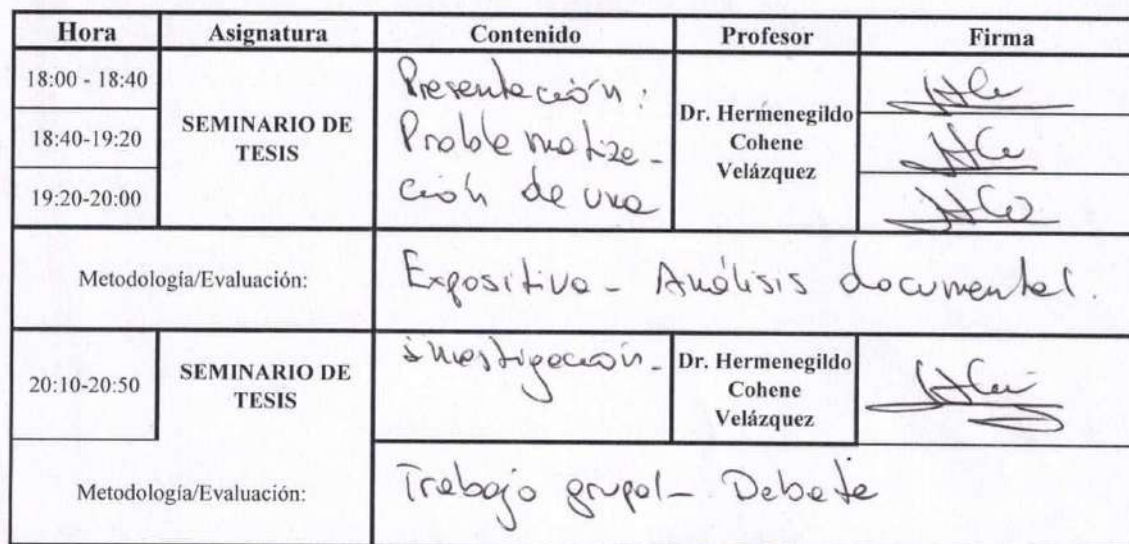 Hora Asignatura Contenido Profesor Firma
18:00 - 18:40
18:40-19:20
19:20-20:00
SEMINARIO DE
TESIS
Presentación:
Problematiza-
ción de una
Dr. Hermenegildo
Cohene
Velázquez
Metodología/Evaluación:
Expositiva - Análisis documental.
20:10-20:50
SEMINARIO DE
TESIS
investigación.
Dr. Hermenegildo
Cohene
Velázquez
Metodología/Evaluación:
Trabajo grupal - Debate